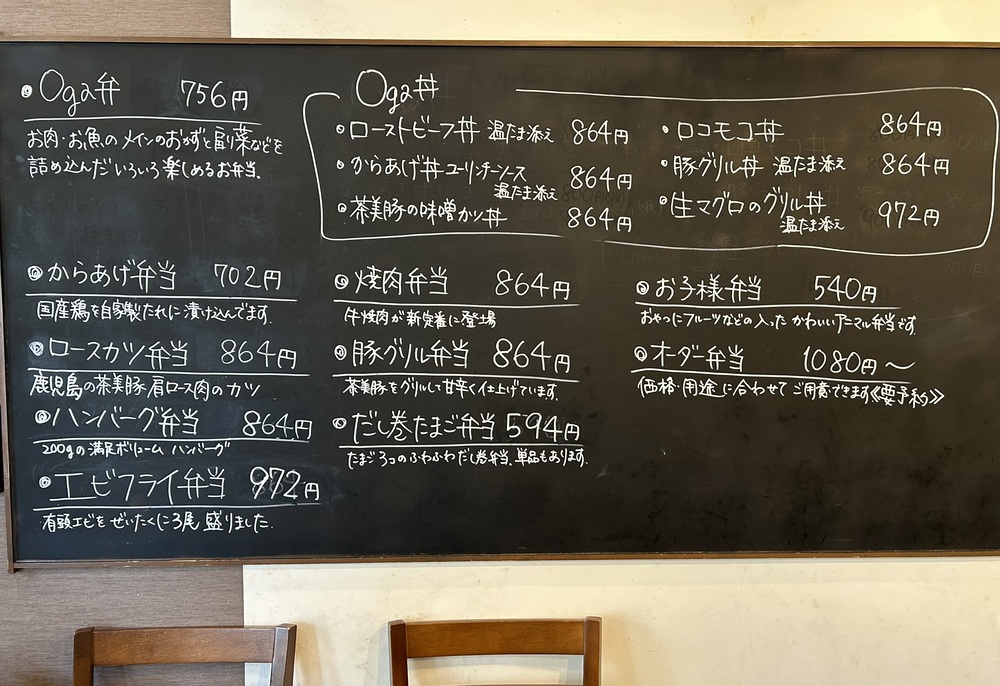 Oga弁 756円
お肉・お魚の メインのおかずと副菜などを
詰め込んだいろいろ楽しめるお弁当。
Oga丼
ローストビーフ丼 温たま添え 864円
からあげ丼 ユーリンチーソース
温たま添え 864円
茶美豚の味噌カツ丼 864円
ロコモコ丼 864円
豚グリル丼 温たま添え 864円
生マグロのグリル丼
温たま添え 972円
からあげ弁当 702円
国産鶏を自家製たれに漬け込んでます。
ロースカツ弁当 864円
鹿児島の茶美豚肩ロース肉のカツ
ハンバーグ弁当 864円
200gの満足ボリューム ハンバーグ
エビフライ弁当 972円
有頭エビを ぜいたくに3尾 盛りました。
焼肉弁当 864円
牛焼肉が新定番に登場
豚グリル弁当 864円
茶美豚をグリルして甘辛く仕上げています。
だし巻たまご弁当 594円
たまご3コのふわふわだし巻弁当。単品もあります。
お子様弁当 540円
おやつにフルーツなどの入った かわいいアニマル弁当です。
オーダー弁当 1080円〜
価格・用途に合わせて ご用意できます《要予約》